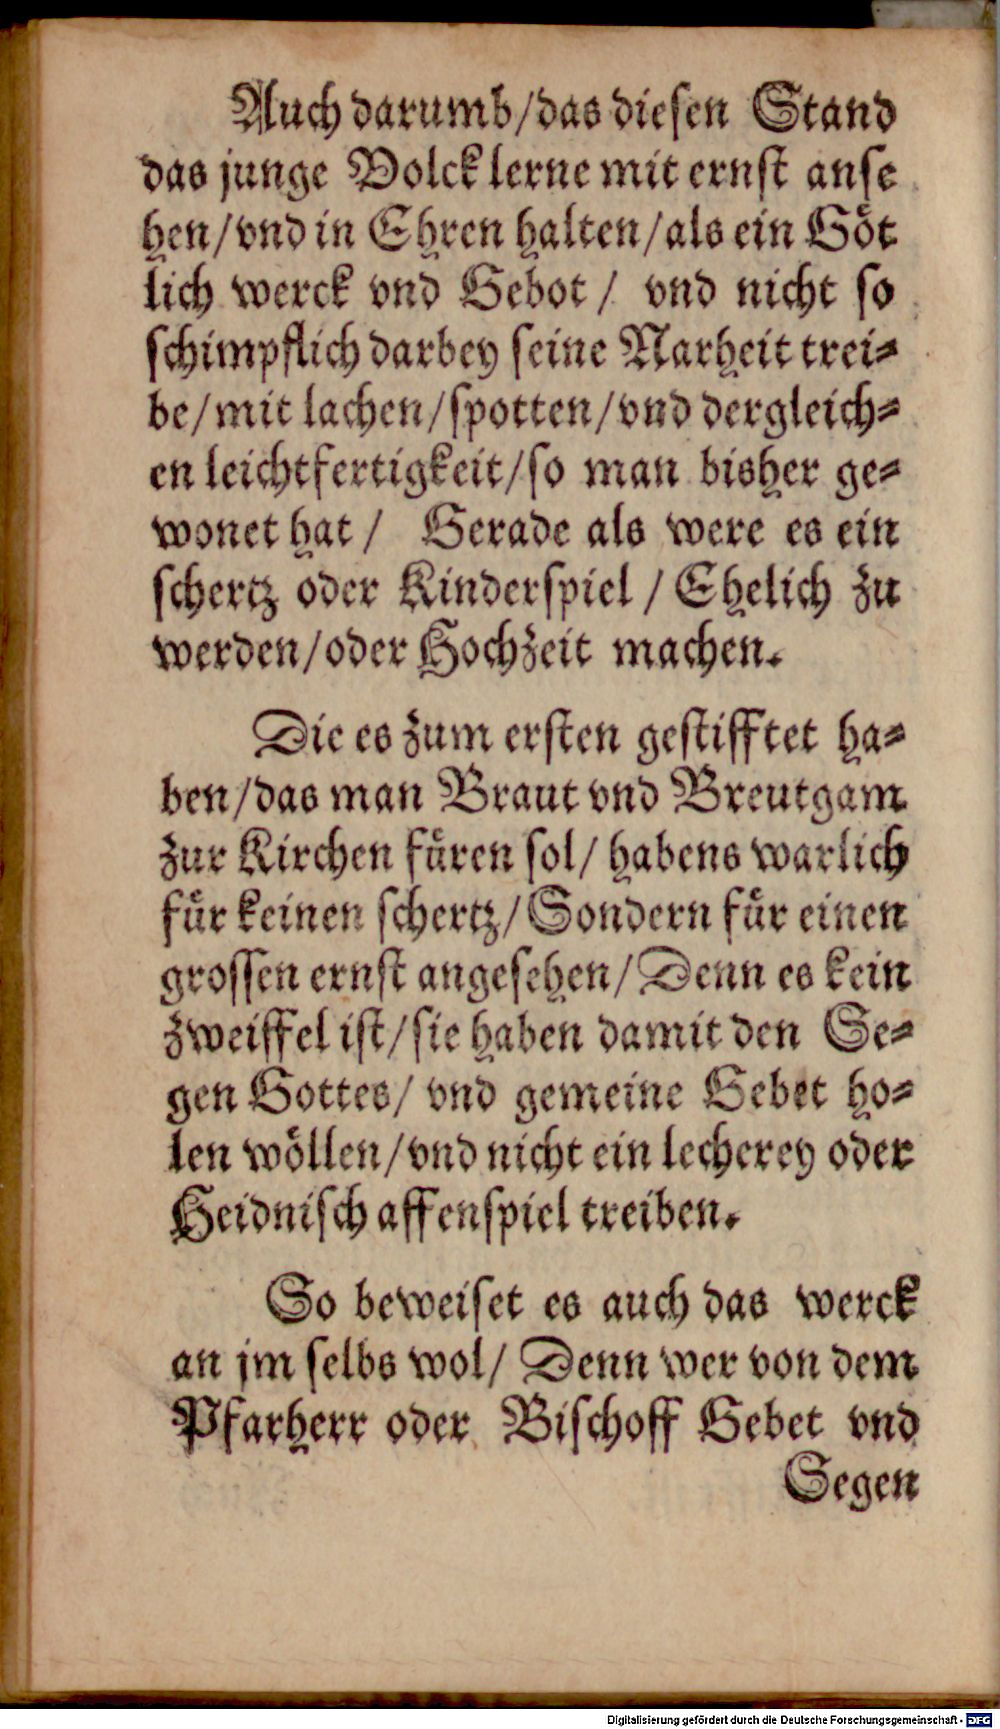 Auch darumb/das diesen Stand
das junge Volck lerne mit ernst anse
hen/vnd in Ehren halten/als ein Göt
lich werck vnd Gebot/ vnd nicht so
schimpflich darbey seine Narheit trei-
be/mit lachen/spotten/vnd dergleich-
en leichtfertigkeit/so man bisher ge-
wonet hat/ Gerade als were es ein
schertz oder Kinderspiel/Ehelich zu
werden/oder Hochzeit machen.
Die es zum ersten gestifftet ha-
ben/das man Braut vnd Breutgam
zur Kirchen füren sol/ habens warlich
für keinen schertz/Sondern für einen
grossen ernst angesehen/Denn es kein
zweiffel ist/sie haben damit den Se-
gen Gottes/ vnd gemeine Gebet ho-
len wöllen/vnd nicht ein lecherey oder
Heidnisch affenspiel treiben.
So beweiset es auch das werck
an jm selbs wol/ Denn wer von dem
Pfarherr oder Bischoff Gebet vnd
Segen
Digitalisierung gefördert durch die Deutsche Forschungsgemeinschaft - DFG